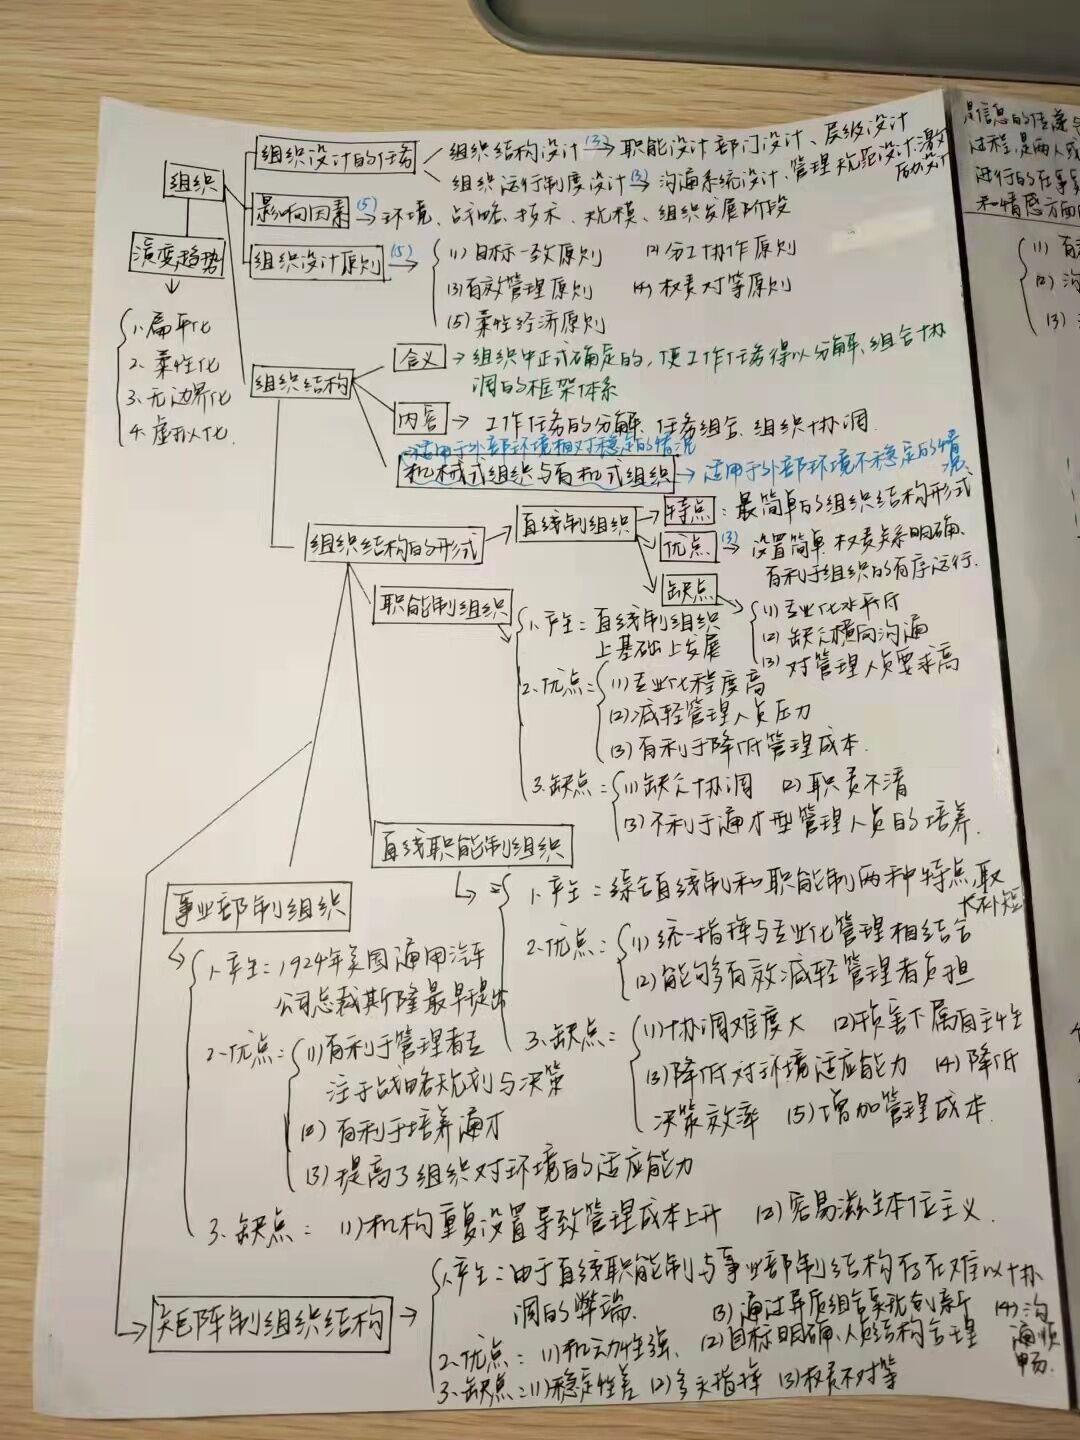 组织
组织设计的任务
组织结构设计(3)→职能设计部门设计、层级设计
组织运行制度设计(3)→沟通系统设计、管理规范设计、激励设计
影响因素(5)→环境、战略、技术、规模、组织发展阶段
组织设计原则(5)→
(1)目标一致原则 (2)分工协作原则
(3)有效管理原则 (4)权责对等原则
(5)柔性经济原则
演变趋势
1.扁平化
2.柔性化
3.无边界化
4.虚拟化
组织结构
含义→组织中正式确定的,使工作任务得以分解、组合协
调的框架体系
内容→工作任务的分解、任务组合、组织协调
适用于外部环境相对稳定的情况
机械式组织与有机式组织→适用于外部环境不稳定的情况
组织结构的形式
直线制组织
特点:最简单的组织结构形式
优点(3)→设置简单、权责关系明确、
有利于组织的有序运行.
缺点
(1)专业化水平低
(2)缺乏横向沟通
(3)对管理人员要求高
职能制组织
1.产生:直线制组织
上基础上发展
2.优点:(1)专业化程度高
(2)减轻管理人员压力
(3)有利于降低管理成本.
3.缺点:(1)缺乏协调 (2)职责不清
(3)不利于通才型管理人员的培养.
直线职能制组织
1.产生:综合直线制和职能制两种特点,取
长补短
2.优点:(1)统一指挥与专业化管理相结合
(2)能够有效减轻管理者负担
3.缺点:(1)协调难度大 (2)损害下属自主性
(3)降低对环境适应能力 (4)降低
决策效率 (5)增加管理成本.
事业部制组织
1.产生:1924年美国通用汽车
公司总裁斯隆最早提出
2.优点:(1)有利于管理者专
注于战略规划与决策
(2)有利于培养通才
(3)提高了组织对环境的适应能力
3.缺点:(1)机构重复设置导致管理成本上升 (2)容易滋生本位主义.
矩阵制组织结构
1.产生:由于直线职能制与事业部制结构存在难以协
调的弊端.
2.优点:(1)机动性强、(2)目标明确、人员结构合理
(3)通过异质组合实现创新 (4)沟
通顺
畅.
3.缺点:(1)稳定性差 (2)多头指挥 (3)权责不对等
是信息的传递与
过程,是两人或
进行的在事实
和情感方面的
(1)有
(2)沟
(3)